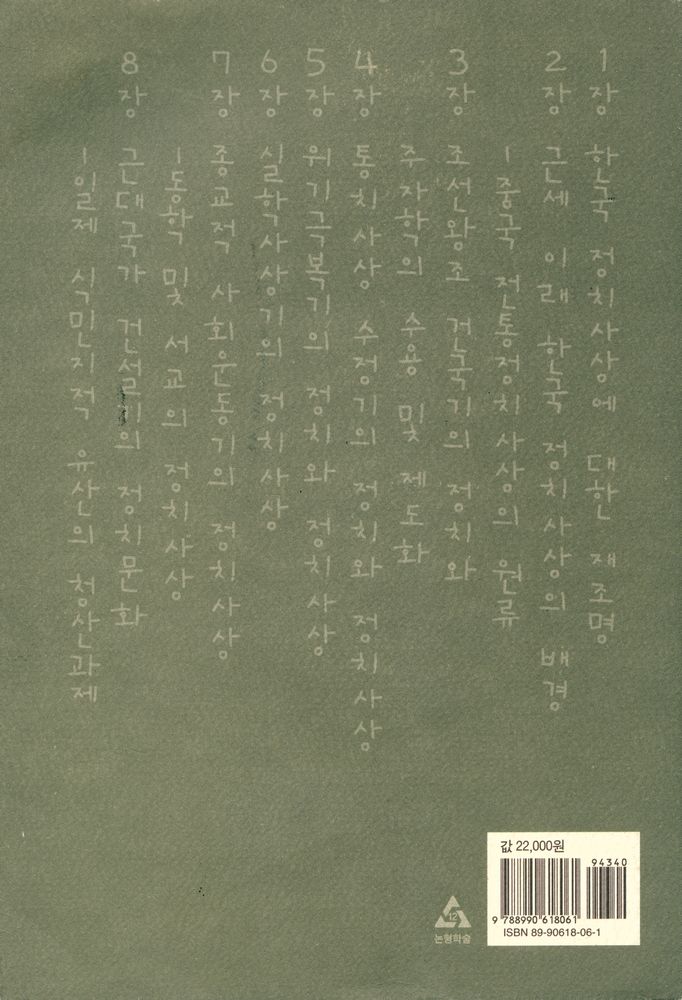 1장 한국 정치사상에 대한 재조명
2장 근세 이래 한국 정치사상의 배경
-중국 전통정치사상의 원류
3장 조선왕조 건국기의 정치와
주자학의 수용 및 제도화
4장 통치사상 수정기의 정치와 정치사상
5장 위기극복기의 정치와 정치사상
6장 실학사상기의 정치사상
7장 종교적 사회운동기의 정치사상
-동학 및 서교의 정치사상
8장 근대국가 건설기의 정치문화
-일제 식민지적 유산의 청산과제
값 22,000원
94340
9 788990 618061
ISBN 89-90618-06-1
12
논형학술